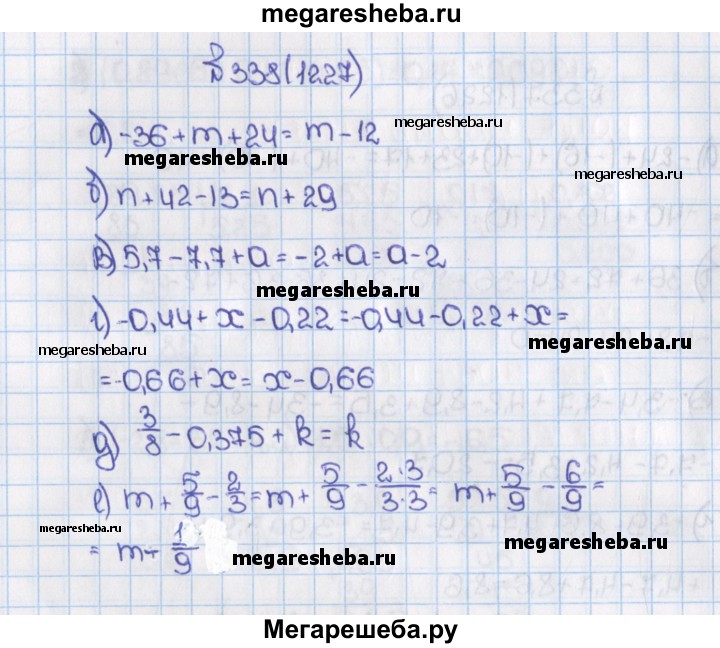 megaresheba.ru
№338(1227)
а) -36+m+24= m-12
megaresheba.ru
megaresheba.ru
megaresheba.ru
б) n+42-13=n+29
в) 5,7-7,7+a=-2+a=a-2
megaresheba.ru
г) -0,44+x-0,22=-0,44-0,22+x=
megaresheba.ru
megaresheba.ru
=-0,66+x=x-0,66
д) 3/8-0,375+k=k
е) m+5/9-2/3=m+5/9-2·3/3·3= m+5/9-6/9=
megaresheba.ru
=m-1/9
megaresheba.ru
megaresheba.ru
Мегарешеба.ру